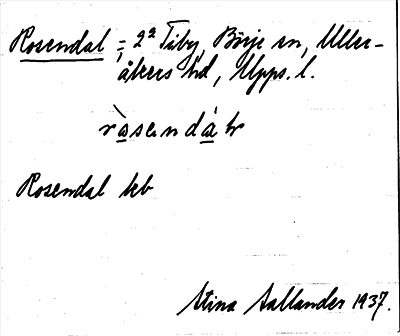 Rosendal = 2ª Täby, Börje sn, Uller-
åkers hd, Upps. l.
Rosendal
Stina Sallander 1937.